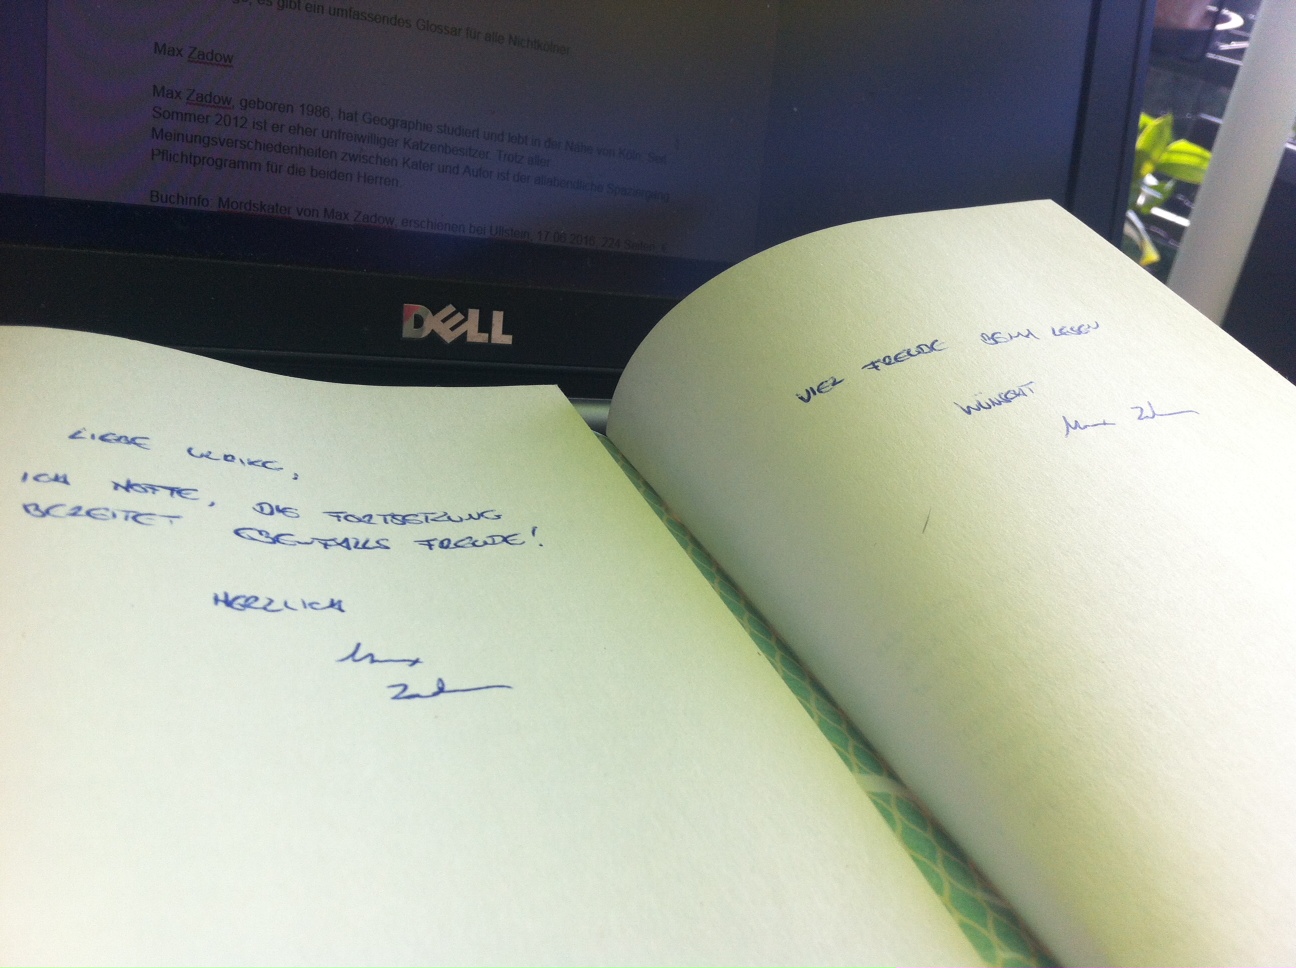 es gibt ein umfassendes Glossar für alle Nichtkölner.
Max Zadow
Max Zadow, geboren 1986, hat Geographie studiert und lebt in der Nähe von Köln. Seit
Sommer 2012 ist er eher unfreiwilliger Katzenbesitzer. Trotz aller
Meinungsverschiedenheiten zwischen Kater und Autor ist der allabendliche Spaziergang
Pflichtprogramm für die beiden Herren.
Buchinfo: Mordskater von Max Zadow, erschienen bei Ullstein, 17.06.2016, 224 Seiten
DELL
LIEBE ULRIKE,
ICH HOFFE, DIE FORTSETZUNG
BEREITET EBENFALLS FREUDE!
HERZLICH
Max
Zadow
VIEL FREUDE BEIM LESEN
WÜNSCHT
Max Zadow